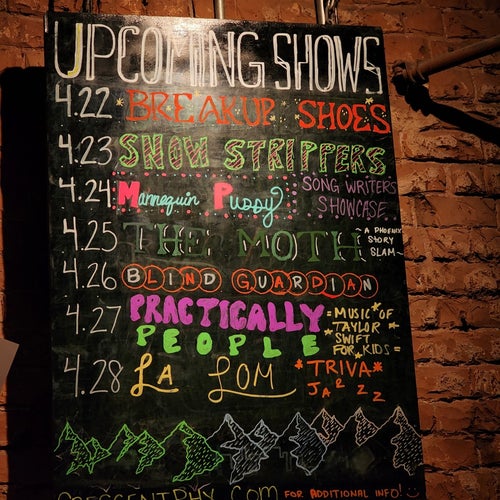 UPCOMING SHOWS
4.22 BREAKUP SHOES
4.23 SNOW STRIPPERS
4.24 Mannequin Pussy SONG WRITERS SHOWCASE
4.25 THE MOTH ~A PHOENIX STORY SLAM~
4.26 BLIND GUARDIAN
4.27 PRACTICALLY PEOPLE =MUSIC OF TAYLOR SWIFT FOR KIDS=
4.28 LA LOM *TRIVA* JARZZ
CRESCENTPHX.COM FOR ADDITIONAL INFO!